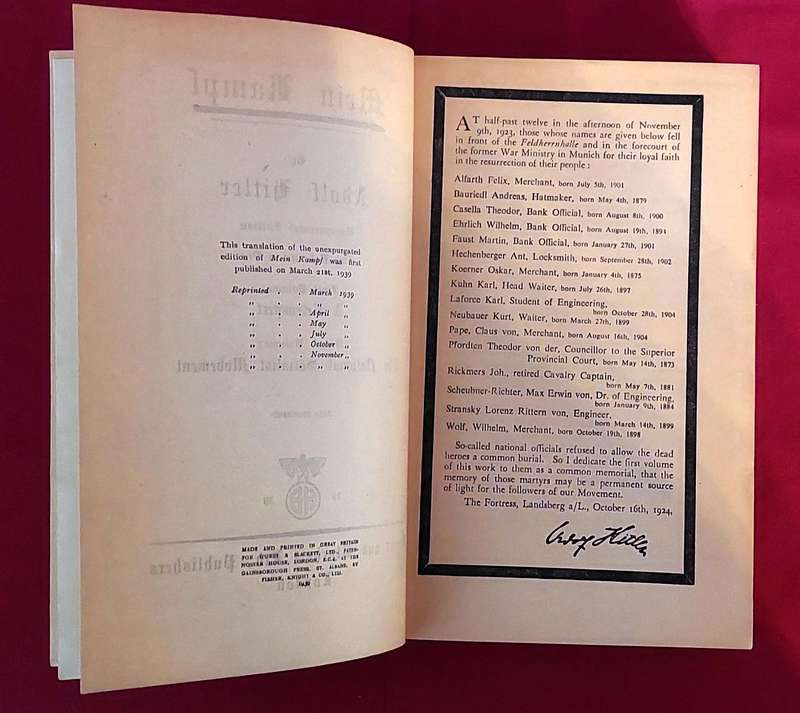 This translation of the unexpurgated
edition of Mein Kampf was first
published on March 21st, 1939
Reprinted . . March 1939
„ . . „ „
„ . . April „
„ . . May „
„ . . July „
„ . . October „
„ . . November „
„ . . „ „
MADE AND PRINTED IN GREAT BRITAIN
FOR HURST & BLACKETT, LTD., PATER-
NOSTER HOUSE, LONDON, E.C.4, AT THE
GAINSBOROUGH PRESS, ST. ALBANS, BY
FISHER, KNIGHT & CO., LTD.
1939
AT half-past twelve in the afternoon of November
9th, 1923, those whose names are given below fell
in front of the Feldherrnhalle and in the forecourt of
the former War Ministry in Munich for their loyal faith
in the resurrection of their people:
Alfarth Felix, Merchant, born July 5th, 1901
Bauriedl Andreas, Hatmaker, born May 4th, 1879
Casella Theodor, Bank Official, born August 8th, 1900
Ehrlich Wilhelm, Bank Official, born August 19th, 1894
Faust Martin, Bank Official, born January 27th, 1901
Hechenberger Ant, Locksmith, born September 28th, 1902
Koerner Oskar, Merchant, born January 4th, 1875
Kuhn Karl, Head Waiter, born July 26th, 1897
Laforce Karl, Student of Engineering,
born October 28th, 1904
Neubauer Kurt, Waiter, born March 27th, 1899
Pape, Claus von, Merchant, born August 16th, 1904
Pfordten Theodor von der, Councillor to the Superior
Provincial Court, born May 14th, 1873
Rickmers Joh., retired Cavalry Captain,
born May 7th, 1881
Scheubner-Richter, Max Erwin von, Dr. of Engineering,
born January 9th, 1884
Stransky Lorenz Rittern von, Engineer,
born March 14th, 1899
Wolf, Wilhelm, Merchant, born October 19th, 1898
So-called national officials refused to allow the dead
heroes a common burial. So I dedicate the first volume
of this work to them as a common memorial, that the
memory of those martyrs may be a permanent source
of light for the followers of our Movement.
The Fortress, Landsberg a/L., October 16th, 1924,
Adolf Hitler